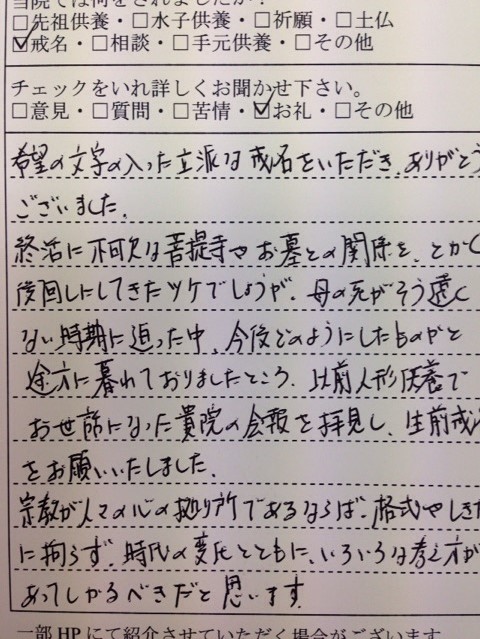 当院では何をされましたか？
□先祖供養・□水子供養・□祈願・□土仏
☑戒名・□相談・□手元供養・□その他
チェックをいれ詳しくお聞かせ下さい。
□意見・□質問・□苦情・☑お礼・□その他
希望の文字の入った立派な戒名をいただき、ありがとう
ございました。
終活に不可欠な菩提寺やお墓との関係を、とかく
後回しにしてきたツケでしょうが、母の死がそう遠く
ない時期に迫った中、今後どのようにしたものかと
途方に暮れておりましたところ、以前人形供養で
お世話になった貴院の会報を拝見し、生前戒
をお願いいたしました。
宗教が人々の心の拠り所であるならば、格式やしきた
に拘らず、時代の変化とともに、いろいろな考え方が
あってしかるべきだと思います。
一部HPにて紹介させていただく場合がございます